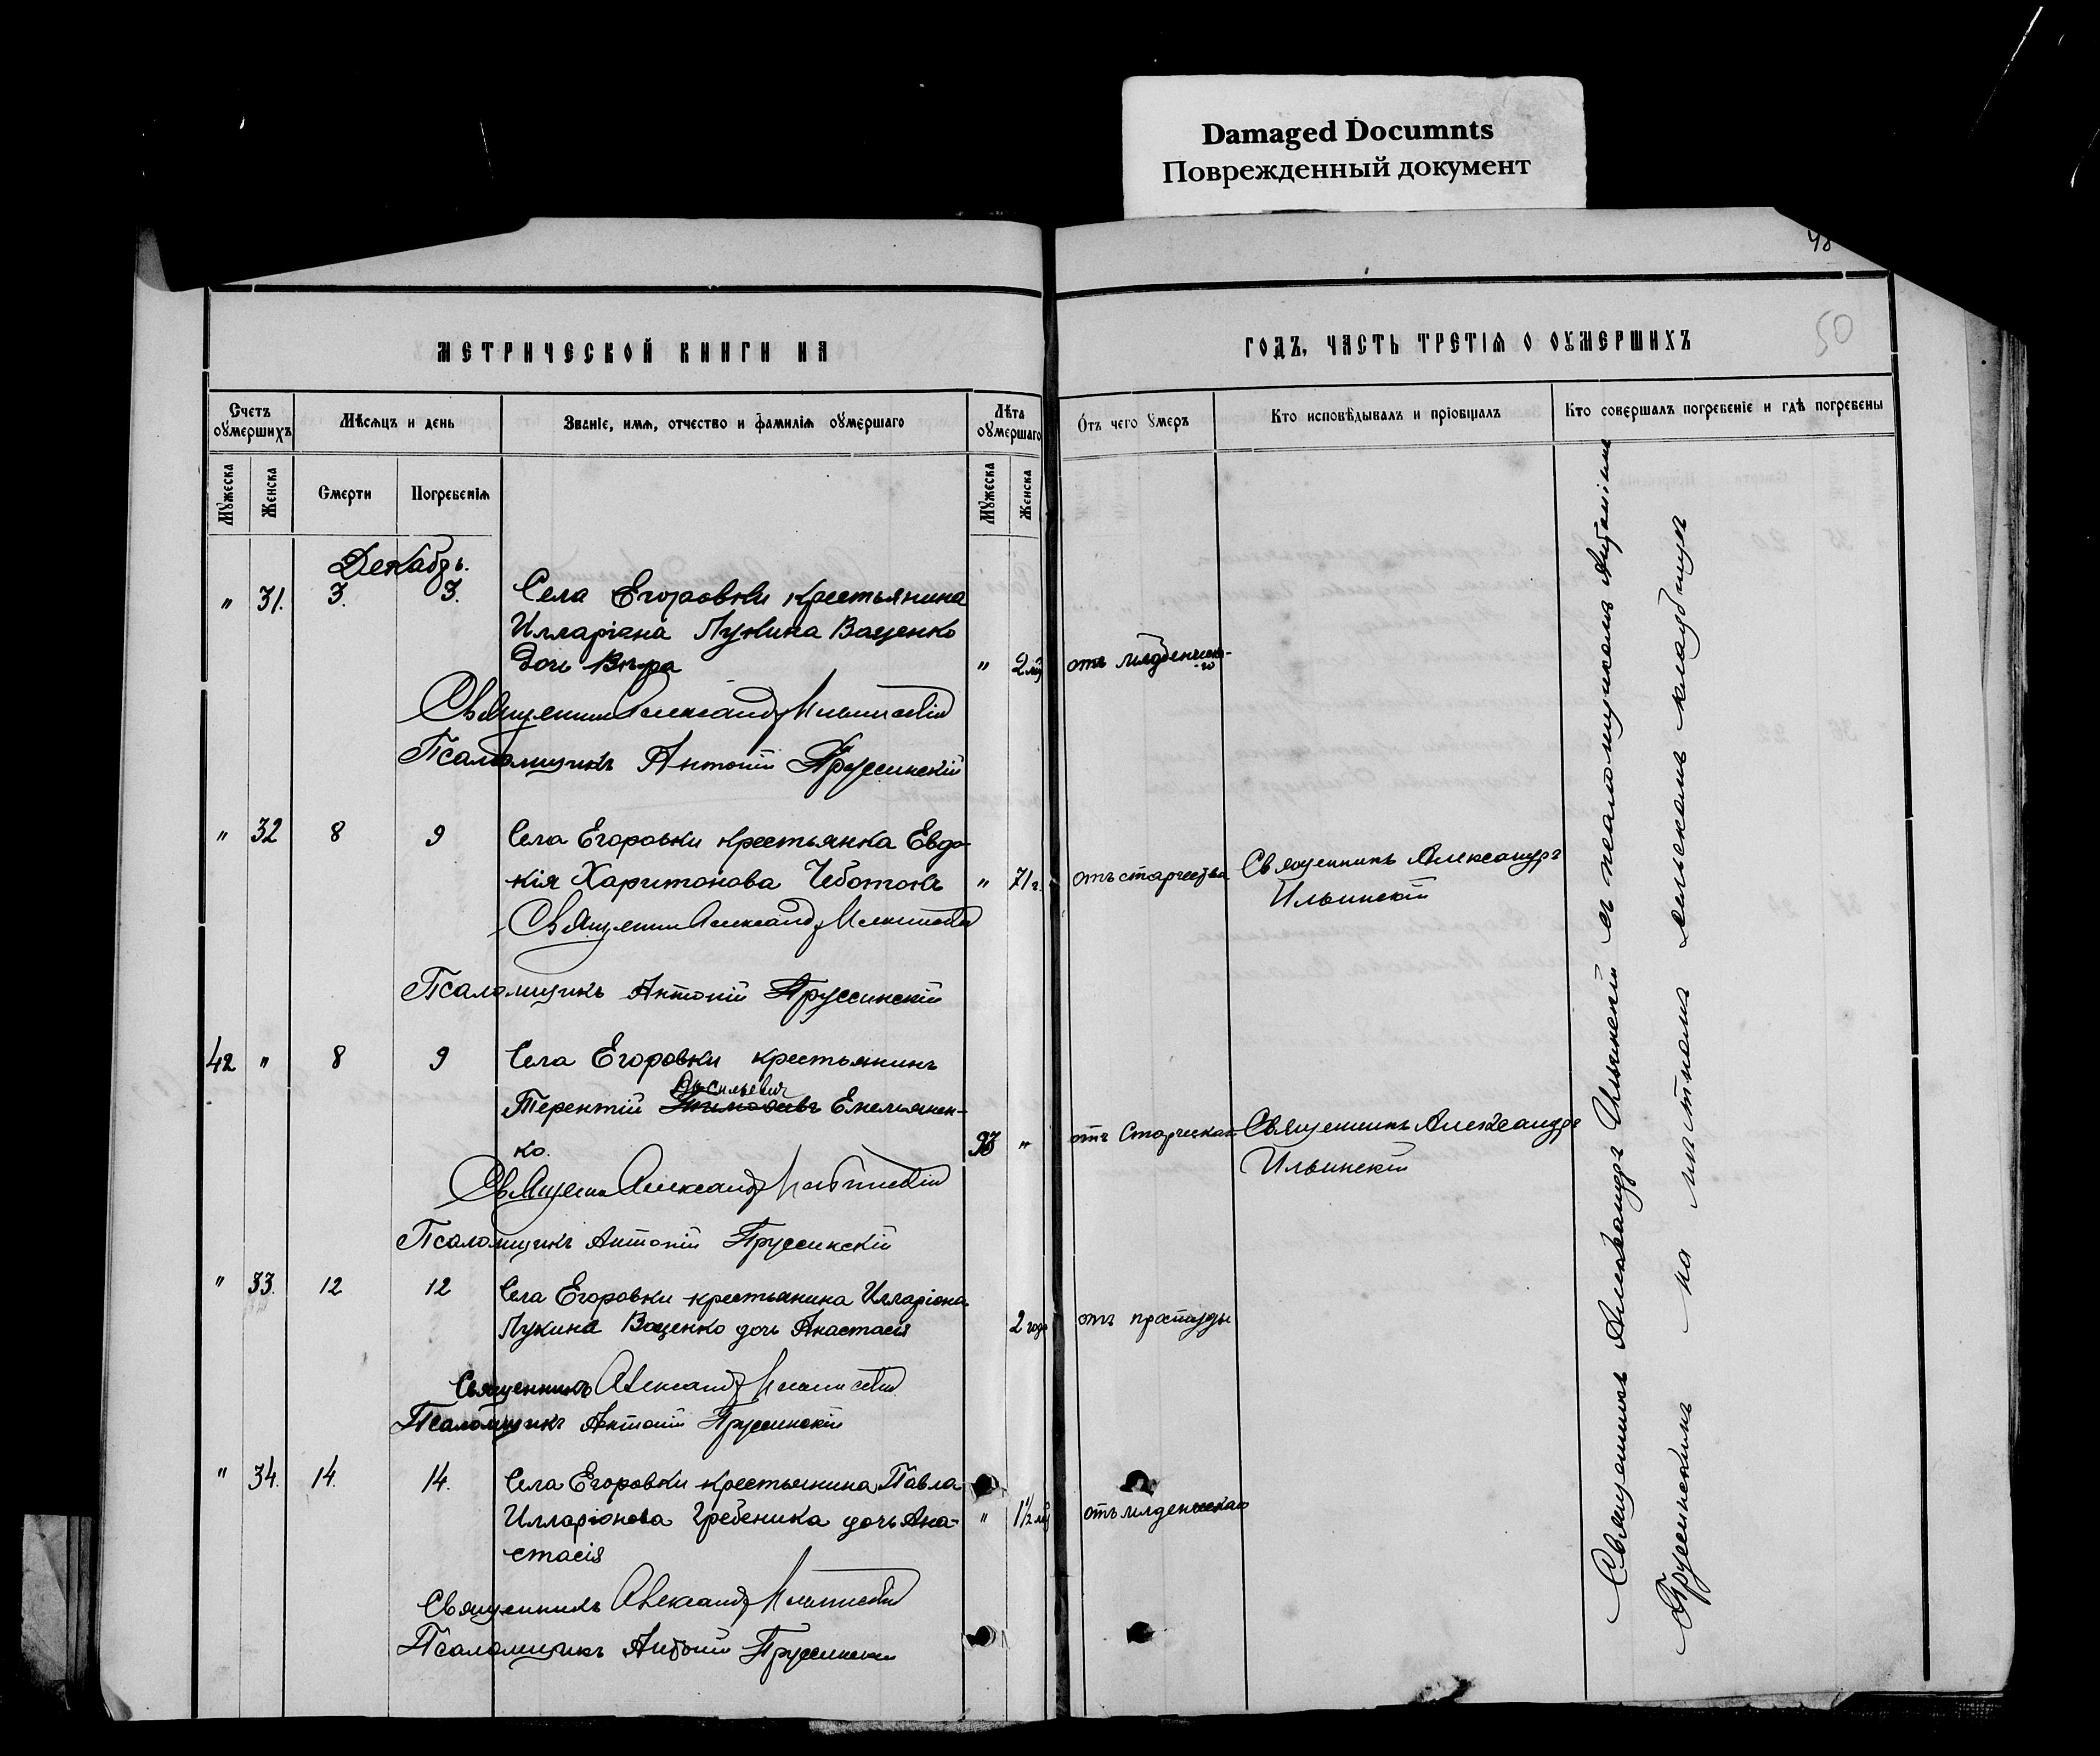 Damaged Documnts
Поврежденный документ
48
50
МЕТРИЧЕСКОЙ КНИГИ НА
ГОДЪ, ЧАСТЬ ТРЕТІѦ О ОУМЕРШИХЪ
Счетъ оумершихъ
Мѣсяцъ и день
Званіе, имя, отчество и фамилія оумершаго
Лѣта оумершаго
Отъ чего умеръ
Кто исповѣдывалъ и пріобщалъ
Кто совершалъ погребеніе и гдѣ погребены
Мужеска
Женска
Смерти
Погребенія
Мужеска
Женска
Декабрь.
" 31. 3. 3. Села Егоровки крестьянина
Илларіона Лукина Ващенко
дочь Вѣра " 2 отъ младенческа-
-го
Священникъ Александръ Ильинскій
Псаломщикъ Антоній Пруссинскій
" 32 8 9 Села Егоровки крестьянка Евдо-
кія Харитонова Чеботокъ " 71 г. отъ старчества Священникъ Александръ
Ильинскій
Священникъ Александръ Ильинскій
Псаломщикъ Антоній Пруссинскій
42 " 8 9 Села Егоровки крестьянинъ
Васильевич
Терентій Емельянен-
ко. 93 " отъ Старческаго Священникъ Александръ
Ильинскій
Священникъ Александръ Ильинскій
Псаломщикъ Антоній Пруссинскій
" 33. 12 12 Села Егоровки крестьянина Илларіона
Лукина Ващенко дочь Анастасія 2 года отъ простуды
Священникъ Александръ Ильинскій
Псаломщикъ Антоній Пруссинскій
" 34. 14. 14. Села Егоровки крестьянина Павла
Илларіонова Гребеника дочь Ана-
стасія " 1½ отъ младенческаго
Священникъ Александръ Ильинскій
Псаломщикъ Антоній Пруссинскій
Священникъ Александръ Ильинскій съ псаломщикомъ Антоніемъ
Пруссинскимъ на мѣстномъ сельскомъ кладбищѣ